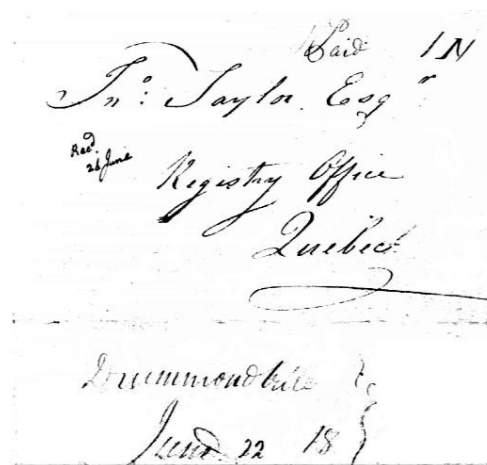 Paid 1N
Jnº: Taylor Esqr
Recd
26 June
Registry Office
Quebec
Drummondville
June 22 18